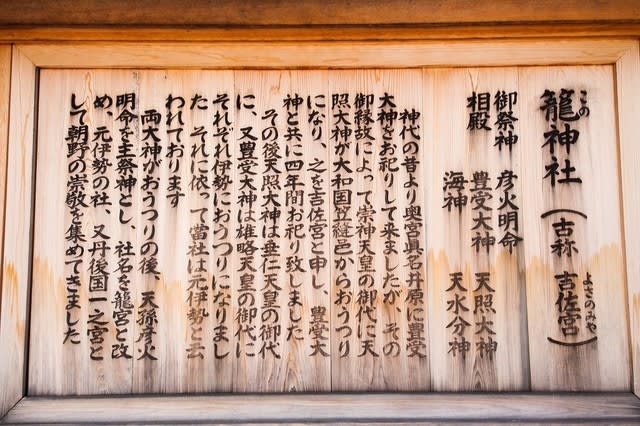 籠神社(古称 吉佐宮)
この
よさのみや
御祭神 彦火明命
相殿 豊受大神 天照大神
海神 天水分神
神代の昔より奥宮眞名井原に豊受
大神をお祀りして来ましたが、その
御縁故によって崇神天皇の御代に天
照大神が大和国笠縫邑からおうつり
になり、之を吉佐宮と申し 豊受大
神と共に四年間お祀り致しました
その後天照大神は垂仁天皇の御代
に、又豊受大神は雄略天皇の御代に
それぞれ伊勢におうつりになりまし
た それに依って當社は元伊勢と云
われております
両大神がおうつりの後、天孫彦火
明命を主祭神とし、社名を籠宮と改
め、元伊勢の社、又丹後国一之宮と
して朝野の崇敬を集めてきました